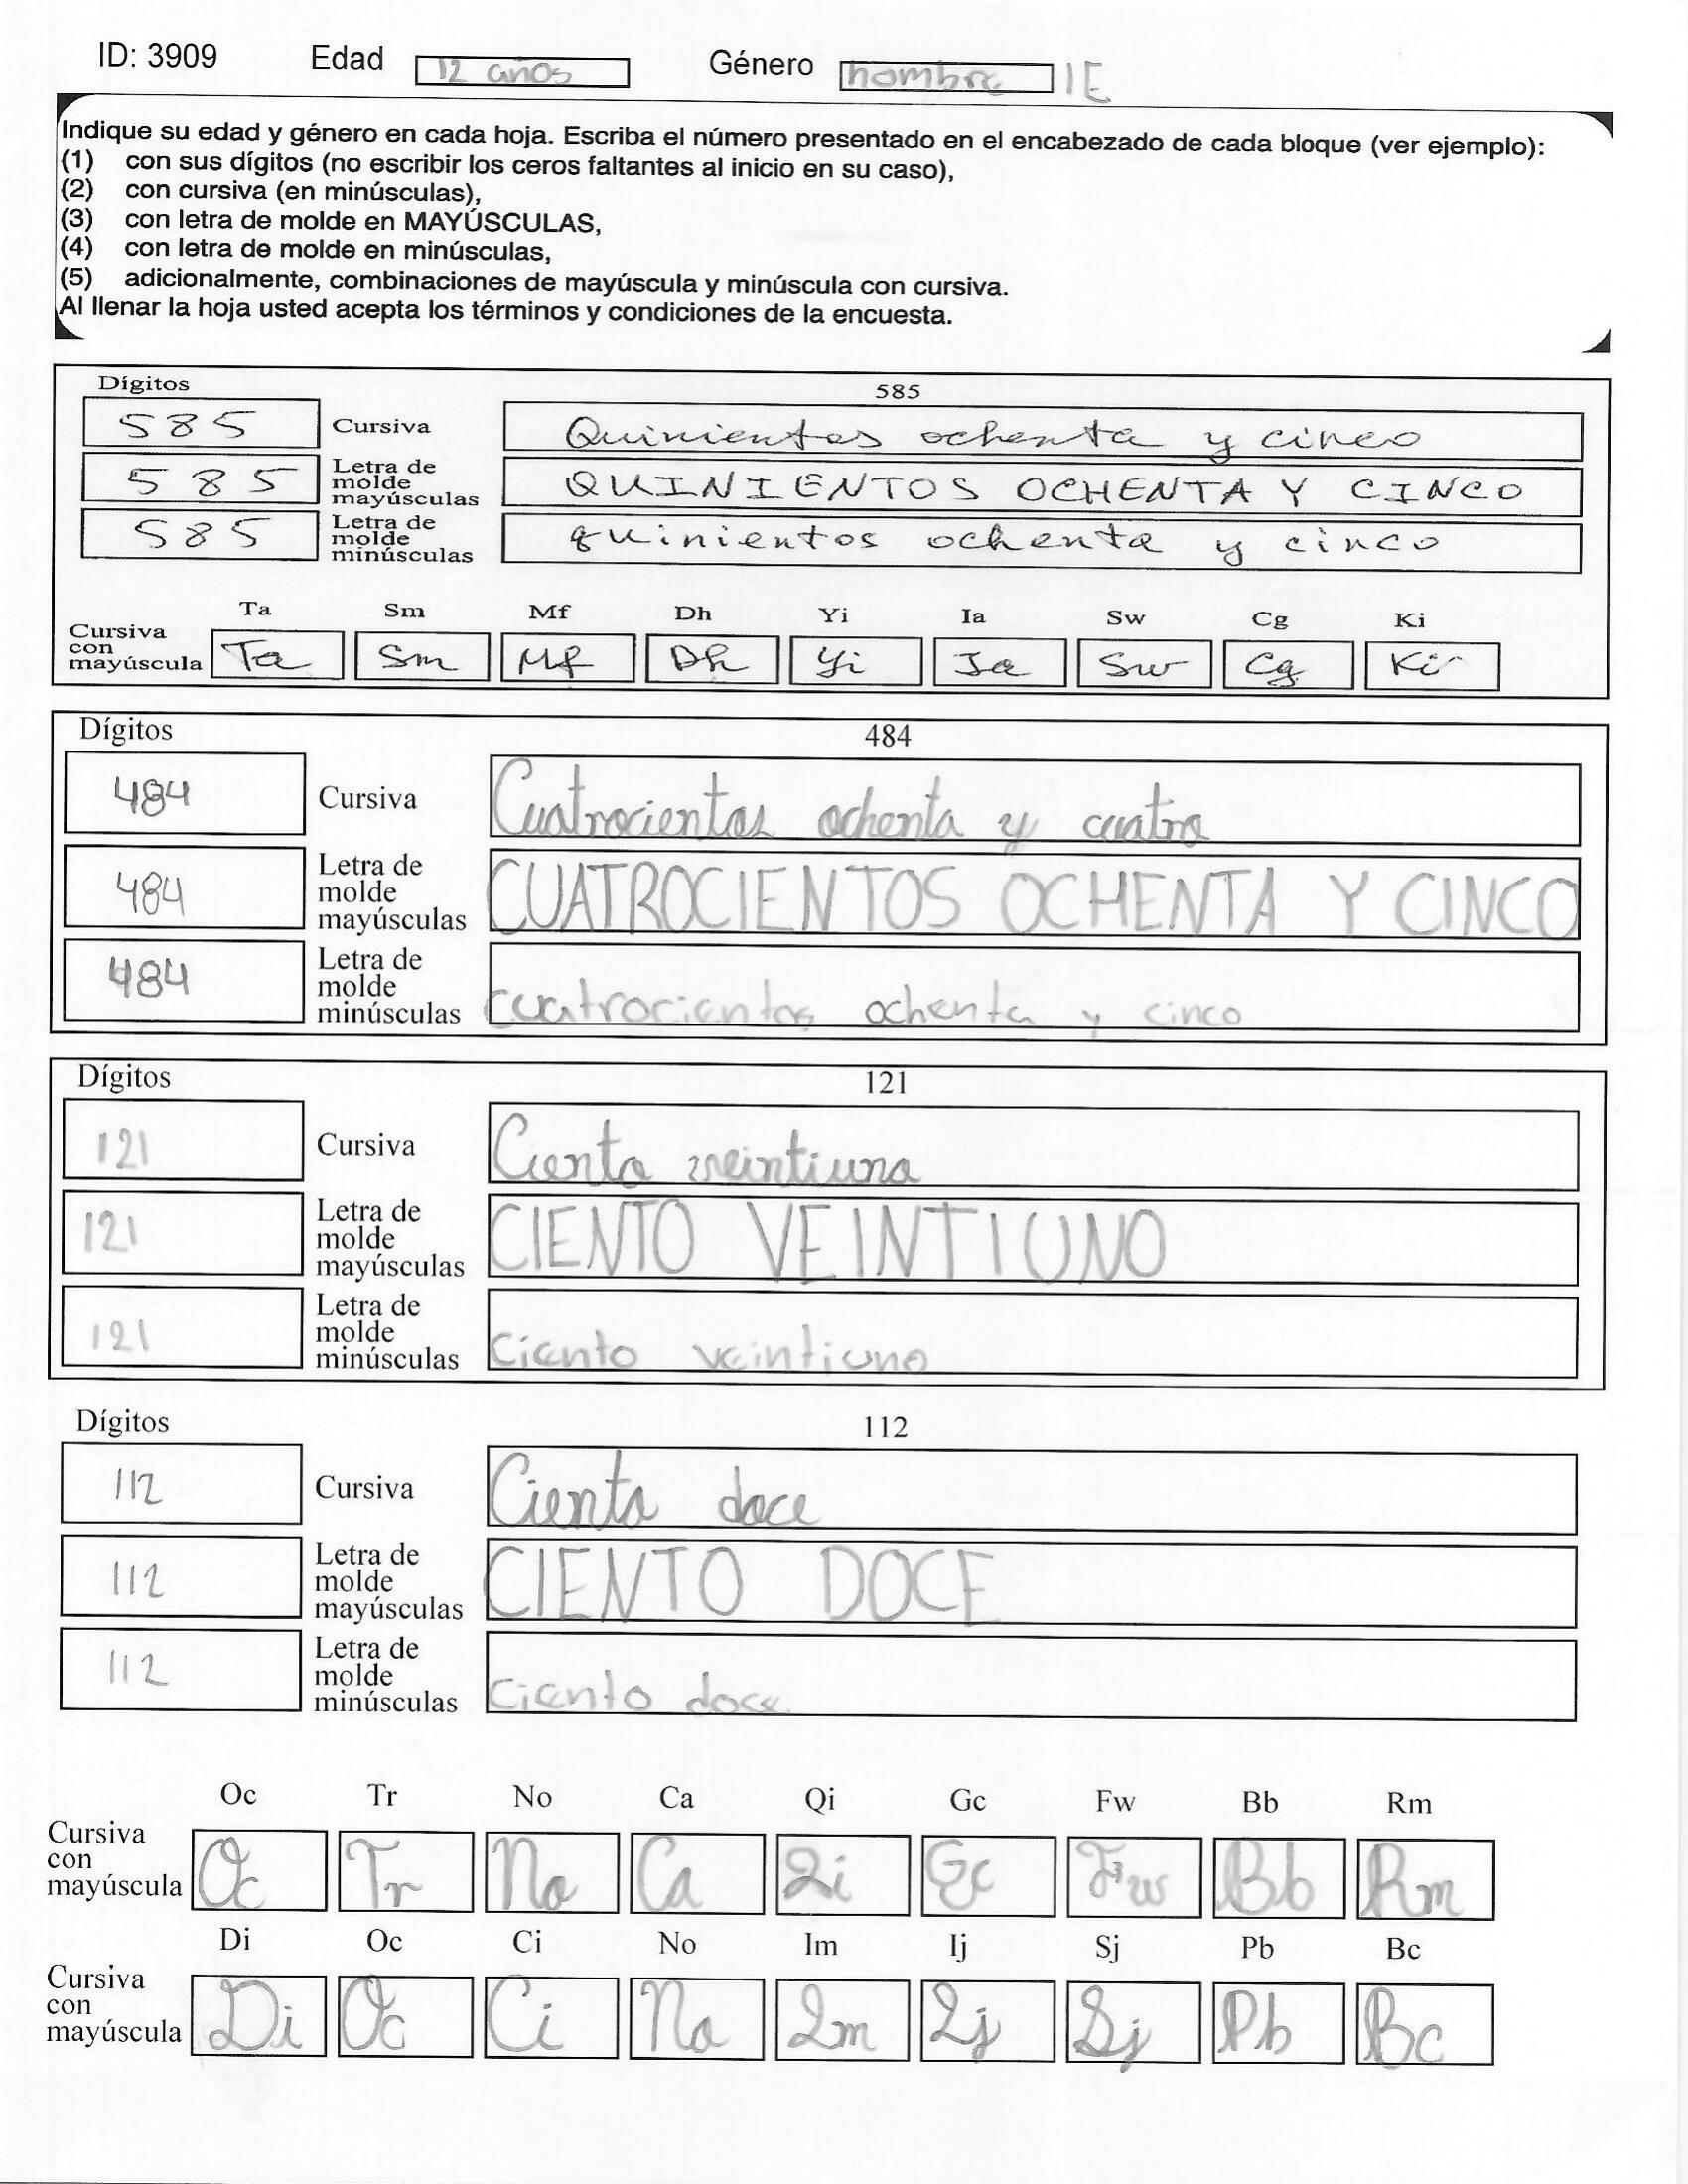 ID: 3909 Edad 12 años Género hombre 1E
Indique su edad y género en cada hoja. Escriba el número presentado en el encabezado de cada bloque (ver ejemplo):
(1) con sus dígitos (no escribir los ceros faltantes al inicio en su caso),
(2) con cursiva (en minúsculas),
(3) con letra de molde en MAYÚSCULAS,
(4) con letra de molde en minúsculas,
(5) adicionalmente, combinaciones de mayúscula y minúscula con cursiva.
Al llenar la hoja usted acepta los términos y condiciones de la encuesta.
Dígitos 585
585 Cursiva Quinientos ochenta y cinco
585 Letra de molde mayúsculas QUINIENTOS OCHENTA Y CINCO
585 Letra de molde minúsculas quinientos ochenta y cinco
Ta Sm Mf Dh Yi Ia Sw Cg Ki
Cursiva con mayúscula Ta Sm Mf Dh Yi Ia Sw Cg Ki
Dígitos 484
484 Cursiva Cuatrocientos ochenta y cuatro
484 Letra de molde mayúsculas CUATROCIENTOS OCHENTA Y CINCO
484 Letra de molde minúsculas cuatrocientos ochenta y cinco
Dígitos 121
121 Cursiva Ciento veintiuno
121 Letra de molde mayúsculas CIENTO VEINTIUNO
121 Letra de molde minúsculas ciento veintiuno
Dígitos 112
112 Cursiva Ciento doce
112 Letra de molde mayúsculas CIENTO DOCE
112 Letra de molde minúsculas ciento doce
Oc Tr No Ca Qi Gc Fw Bb Rm
Cursiva con mayúscula Oc Tr No Ca Qi Gc Fw Bb Rm
Di Oc Ci No Im Ij Sj Pb Bc
Cursiva con mayúscula Di Oc Ci No Im Ij Sj Pb Bc